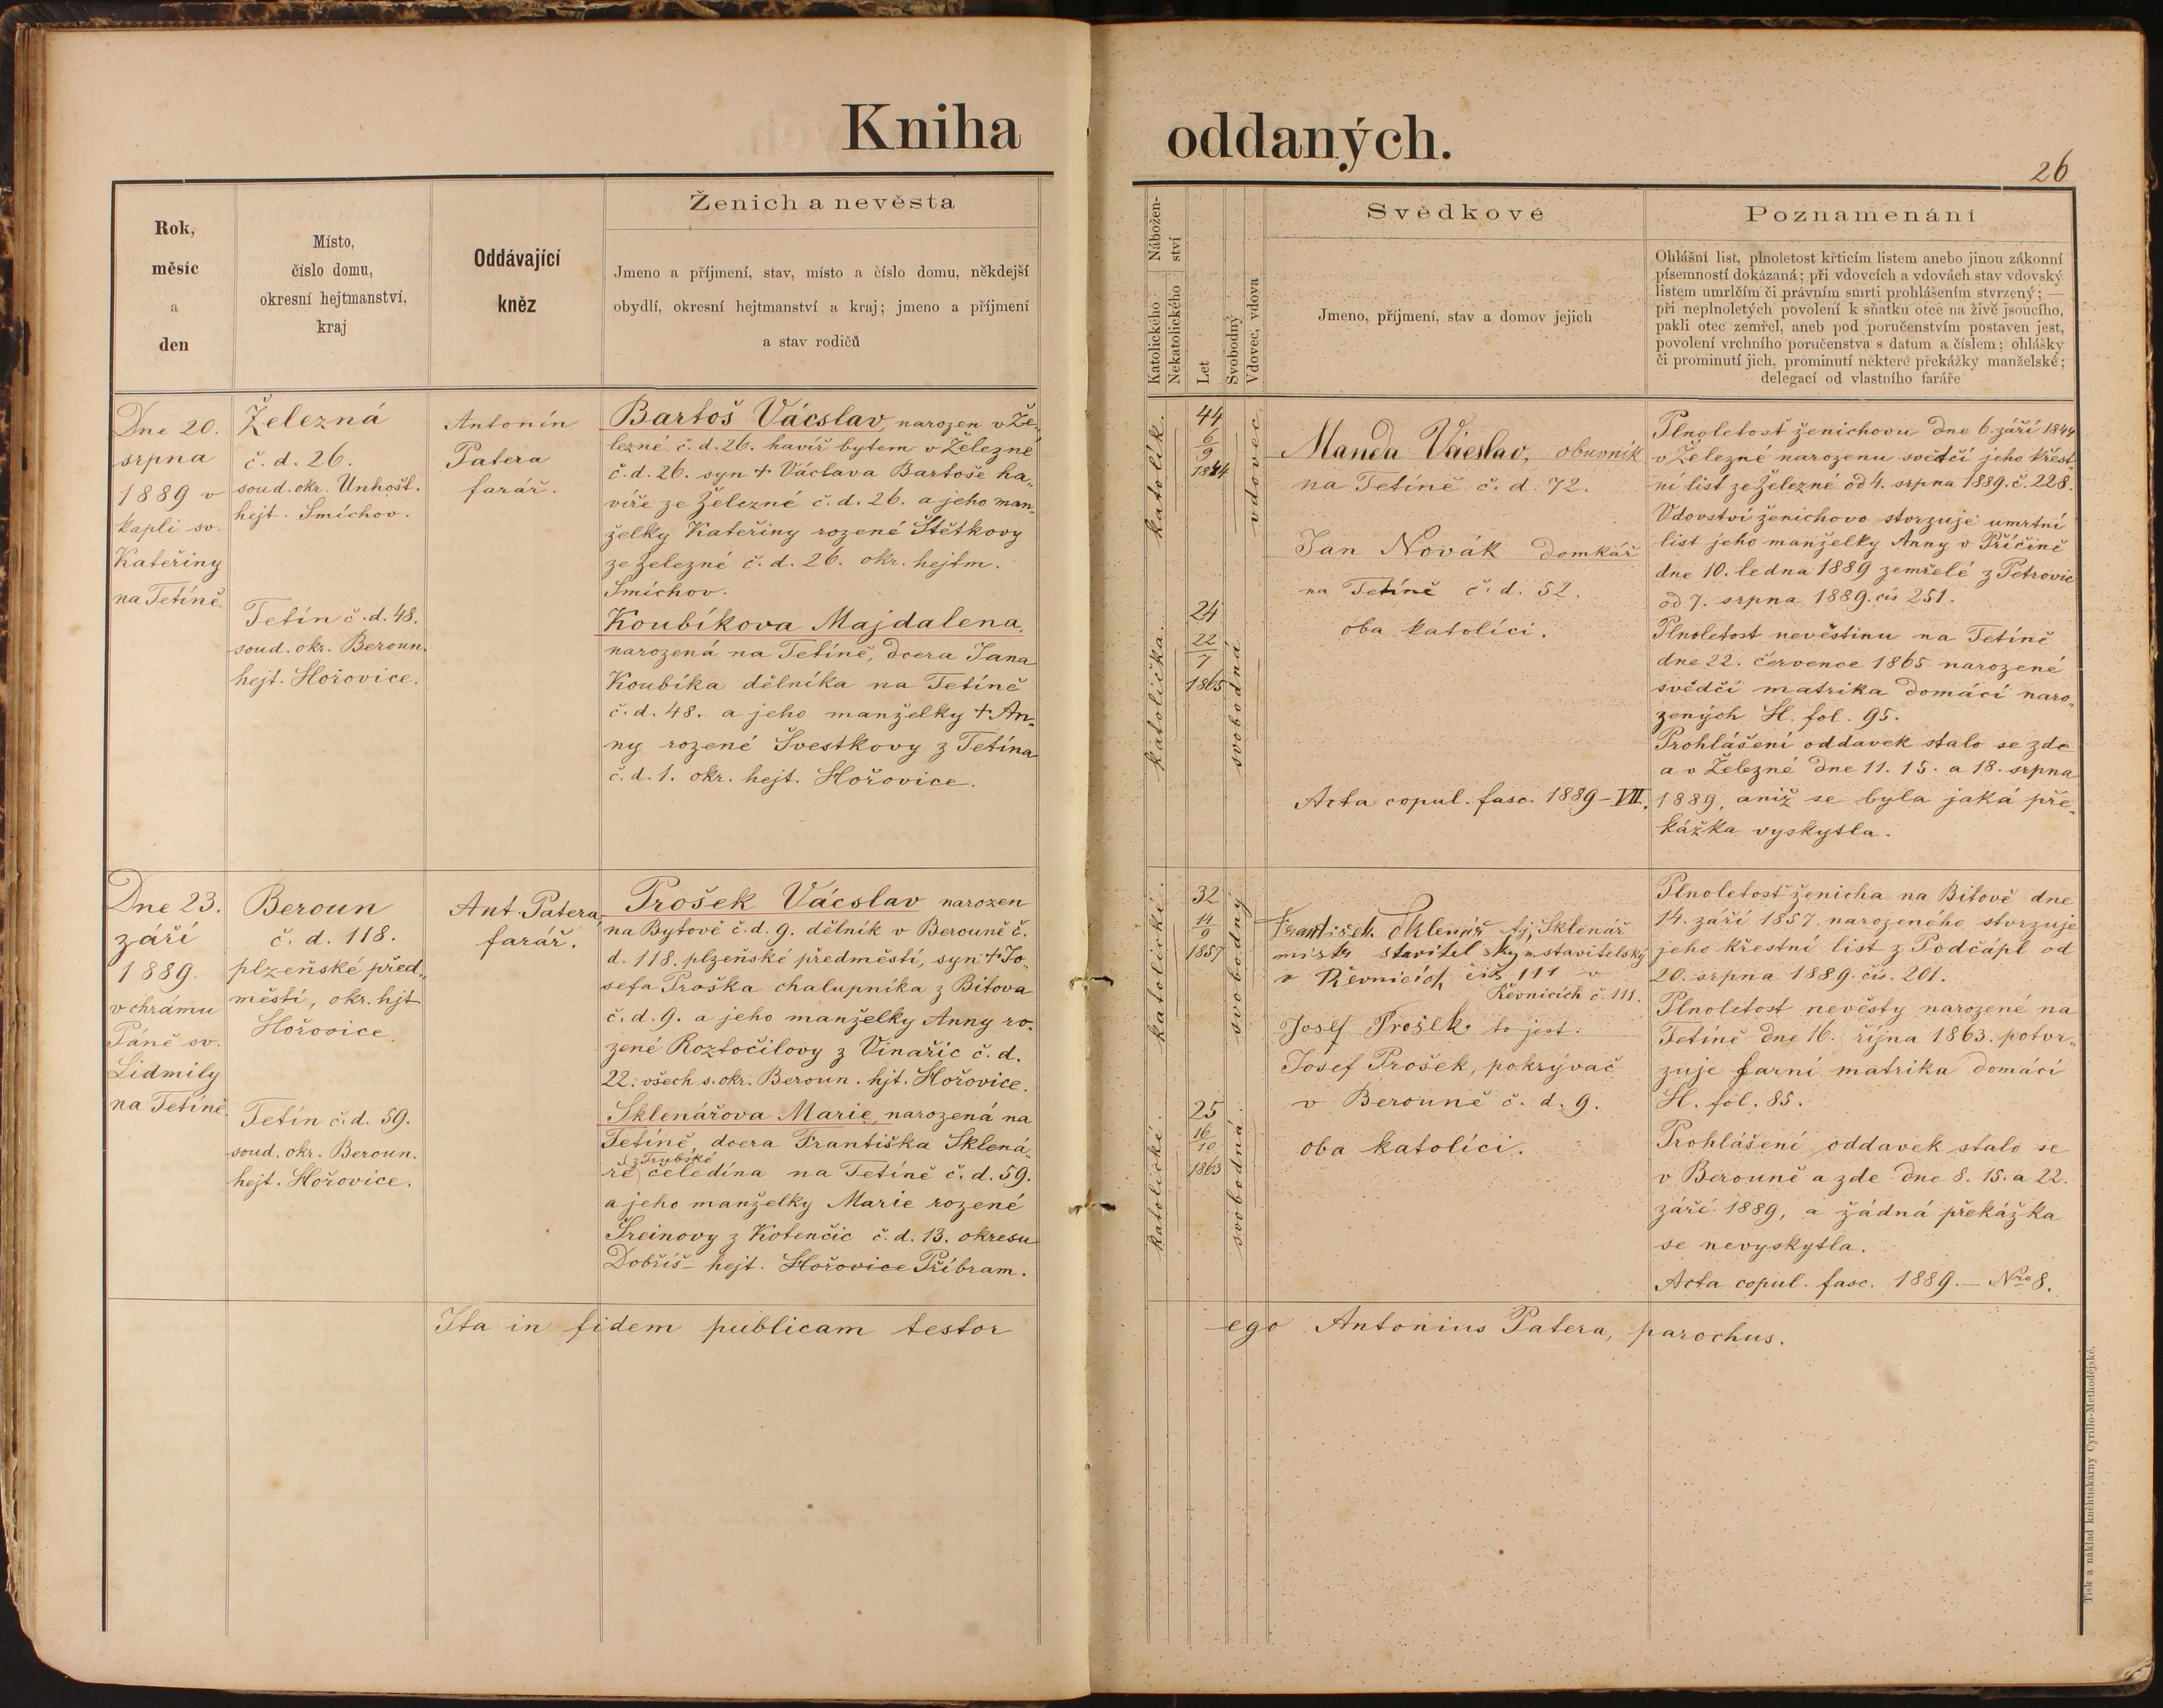 Kniha oddaných.
26
Rok,
měsíc
a
den
Místo,
číslo domu,
okresní hejtmanství,
kraj
Oddávající
kněz
Ženich a nevěsta
Jmeno a příjmení, stav, místo a číslo domu, někdejší
obydlí, okresní hejtmanství a kraj; jmeno a příjmení
a stav rodičů
Nábožen-
ství
Katolického
Nekatolického
Let
Svobodný
Vdovec, vdova
Svědkové
Jmeno, příjmení, stav a domov jejich
Poznamenání
Ohlášní list, plnoletost křticím listem anebo jinou zákonní
písemností dokázaná; při vdovcích a vdovách stav vdovský
listem umrlčím či právním smrti prohlášením stvrzený; —
při neplnoletých povolení k sňatku otce na živě jsoucího,
pakli otec zemřel, aneb pod poručenstvím postaven jest,
povolení vrchního poručenstva s datum a číslem; ohlášky
či prominutí jich, prominutí některé překážky manželské;
delegací od vlastního faráře
Dne 20.
srpna
1889 v
kapli sv.
Kateřiny
na Tetíně.
Železná
č. d. 26.
soud. okr. Unhošť.
hejt. Smíchov.
Tetín č. d. 48.
soud. okr. Beroun.
hejt. Hořovice.
Antonín
Patera
farář.
Bartoš Vácslav, narozen v Že-
lezné č. d. 26. havíř bytem v Železné
č. d. 26. syn † Václava Bartoše ha-
víře ze Železné č. d. 26. a jeho man-
želky Kateřiny rozené Štětkovy
ze Železné č. d. 26. okr. hejtm.
Smíchov.
Koubíkova Majdalena,
narozená na Tetíně, dcera Jana
Koubíka dělníka na Tetíně
č. d. 48. a jeho manželky † An-
ny rozené Švestkovy z Tetína
č. d. 1. okr. hejt. Hořovice.
katolík.
44
6
9
1844
vdovec
katolička.
24
22
7
1865
svobodná
Manda Vácslav, obuvník
na Tetíně č. d. 72.
Jan Novák domkář
na Tetíně č. d. 52.
oba katolíci.
Acta copul. fasc. 1889 – VII.
Plnoletost ženichovu dne 6. září 1844
v Železné narozenu svědčí jeho křest-
ní list ze Železné od 4. srpna 1889. č. 228.
Vdovství ženichovo stvrzuje umrtní
list jeho manželky Anny v Příčině
dne 10. ledna 1889 zemřelé z Petrovic
od 7. srpna 1889. čís 251.
Plnoletost nevěstinu na Tetíně
dne 22. července 1865 narozené
svědčí matrika domácí naro-
zených H. fol. 95.
Prohlášení oddavek stalo se zde
a v Železné dne 11. 15. a 18. srpna
1889, aniž se byla jaká pře-
kážka vyskytla.
Dne 23.
září
1889.
v chrámu
Páně sv.
Lidmily
na Tetíně.
Beroun
č. d. 118.
plzeňské před-
městí, okr. hjt
Hořovice.
Tetín č. d. 59.
soud. okr. Beroun.
hejt. Hořovice.
Ant. Patera
farář.
Prošek Vácslav narozen
na Bytově č. d. 9. dělník v Berouně č.
d. 118. plzeňské předměstí, syn † Jo-
sefa Proška chalupníka z Bitova
č. d. 9. a jeho manželky Anny ro-
zené Roztočilovy z Vinařic č. d.
22. všech s. okr. Beroun. hjt. Hořovice.
Sklenářova Marie, narozená na
Tetíně, dcera Františka Sklená-
z Trubské
ře čeledína na Tetíně č. d. 59.
a jeho manželky Marie rozené
Šreinovy z Kotenčic č. d. 13. okresu
Dobříš – hejt. Hořovice Příbram.
katolické.
32
14
9
1857
svobodný
katolické.
25
16
10
1863
svobodná.
František Sklenář tj. Sklenář
mistr stavitelský stavitelský
v Řevnicích čís 111 v
Řevnicích č. 111.
Josef Prošek to jest:
Josef Prošek, pokrývač
v Berouně č. d. 9.
oba katolíci.
Plnoletost ženicha na Bitově dne
14. září 1857. narozeného stvrzuje
jeho křestní list z Podčápl od
20. srpna 1889. čís. 201.
Plnoletost nevěsty narozené na
Tetíně dne 16. října 1863. potvr-
zuje farní matrika domácí
H. fol. 85.
Prohlášení oddavek stalo se
v Berouně a zde dne 8. 15. a 22.
září 1889, a žádná překážka
se nevyskytla.
Acta copul. fasc. 1889. – Nro 8.
Ita in fidem publicam testor ego Antonius Patera, parochus.
Tisk a náklad knihtiskárny Cyrillo-Methodějské.